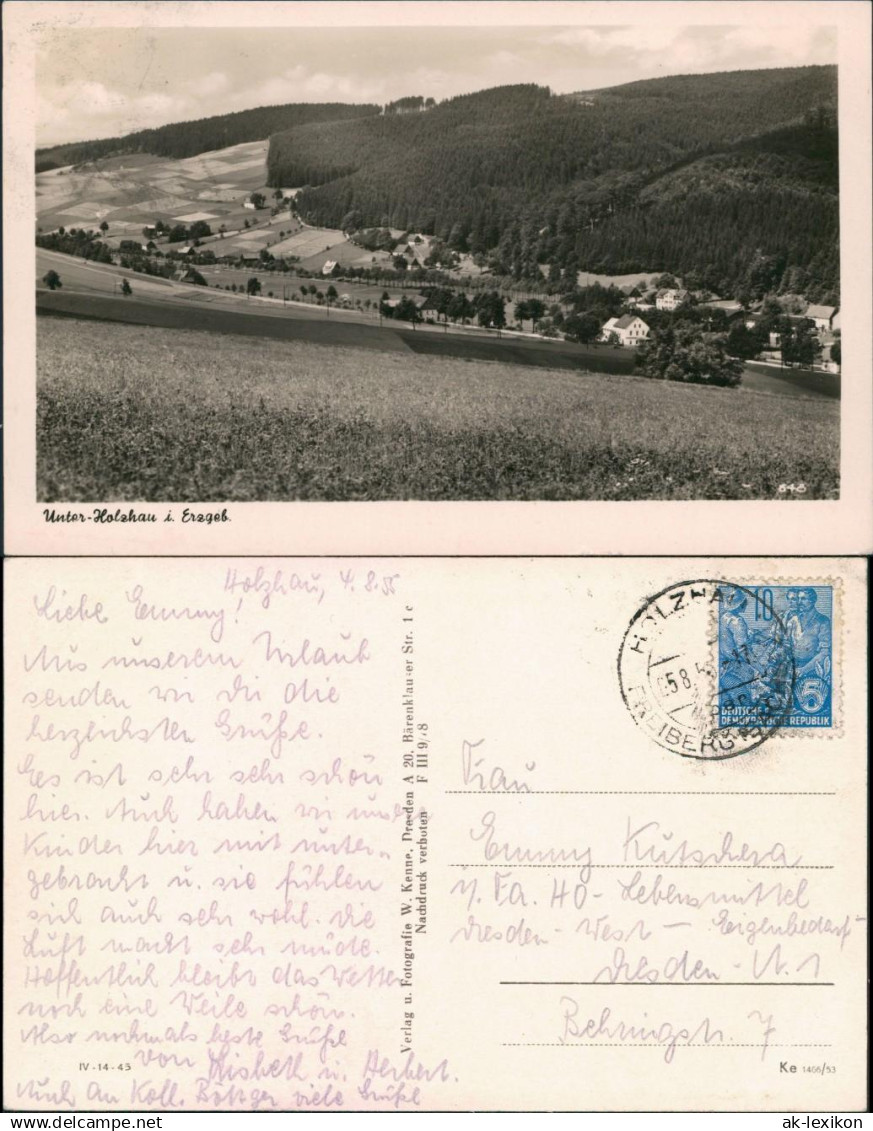 645
Unter-Holzhau i. Erzgeb.
Holzhau, 4.8.55
Liebe Emmy!
Aus unserem Urlaub
senden wir Dir die
herzlichsten Grüße.
Es ist sehr sehr schön
hier. Auch haben wir unsere
Kinder hier mit unter-
gebracht u. sie fühlen
sich auch sehr wohl. Die
Luft macht sehr müde.
Hoffentlich bleibt das Wetter
noch eine Weile schön.
Also nochmals beste Grüße
von Lisbeth u. Herbert.
Auch an Koll. Böttger viele Grüße
IV-14-45
Verlag u. Fotografie W. Kenne, Dresden A 20, Bärenklauser Str. 1 c
Nachdruck verboten F III 9/8
HOLZHAU
FREIBERG
10
5
DEUTSCHE
DEMOKRATISCHE REPUBLIK
Frau
Emmy Kutschera
i. Fa. HO-Lebensmittel
Dresden-West-Eigenbedarf
Dresden-N. 1
Behringstr. 7
Ke 1466/53
ak-lexikon